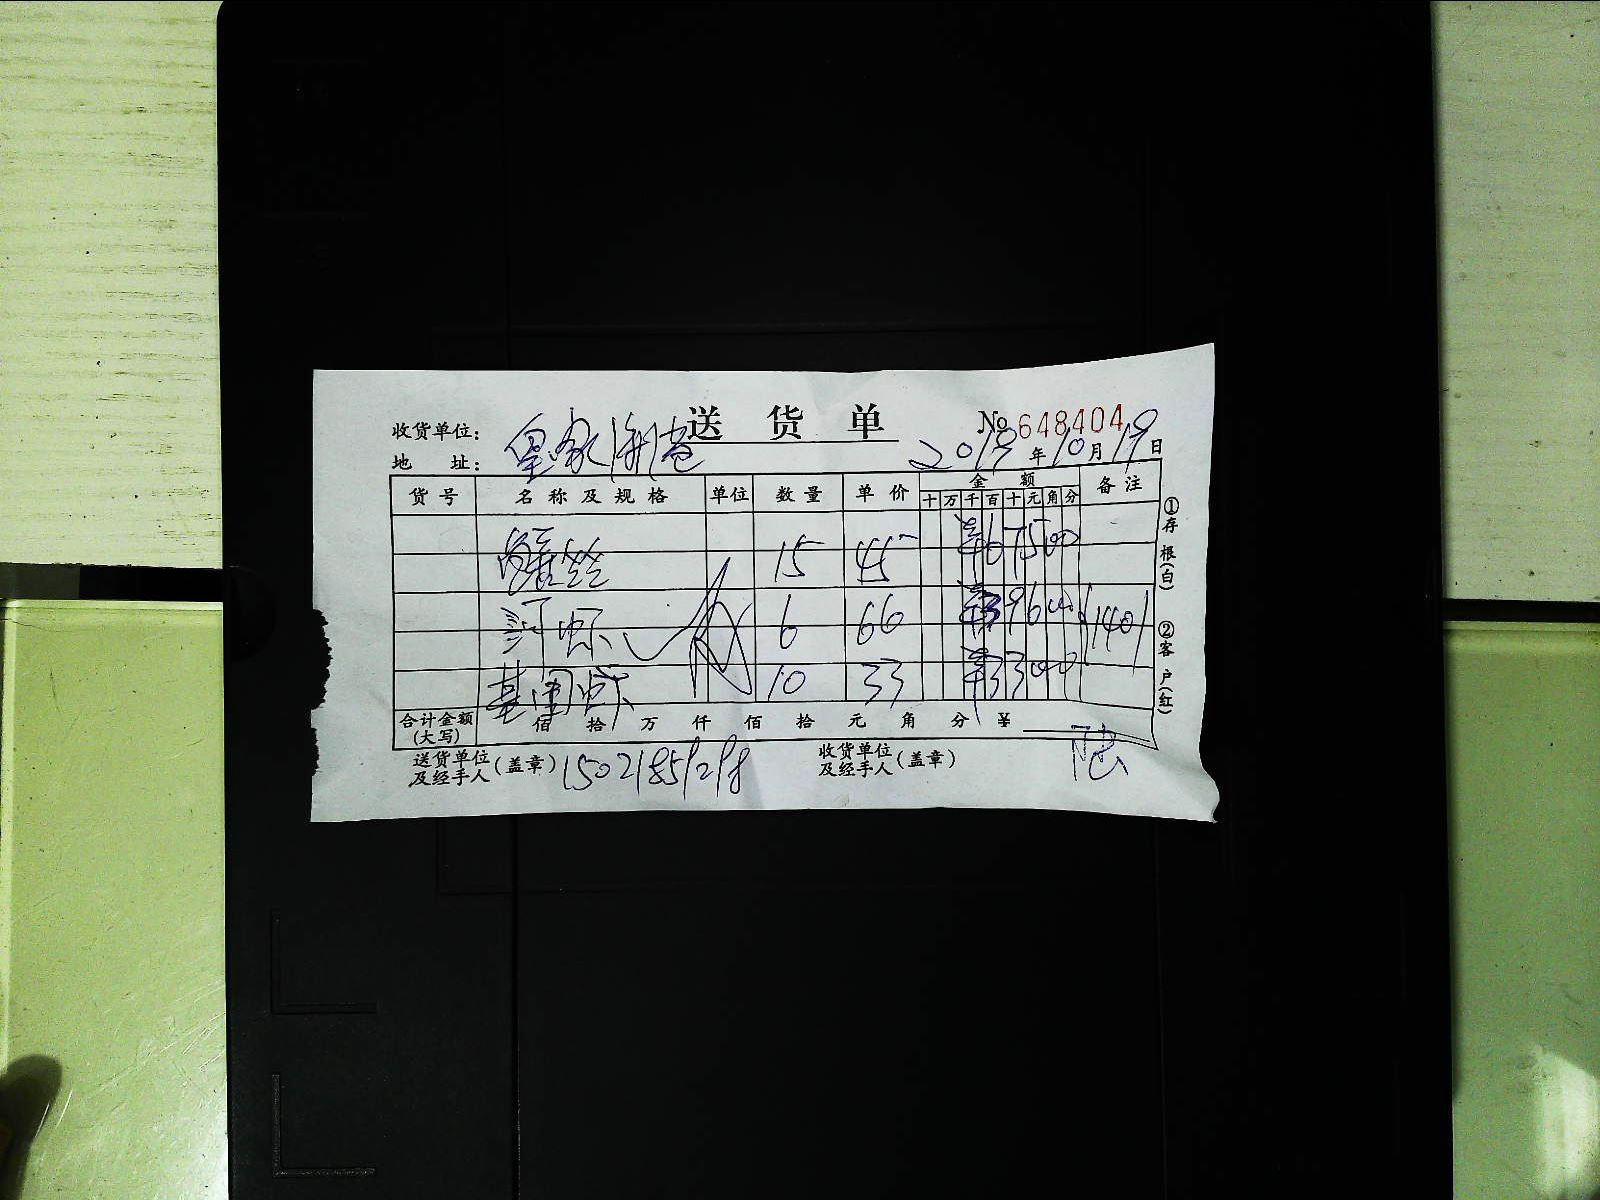 送货单 № 648404
收货单位:
2019年10月19日
地 址:
货号 名称及规格 单位 数量 单价 金额 备注
十 万 千 百 十 元 角 分
鳝丝 15 45 67500
河虾 6 66 39600 1401
基围虾 10 33 33000
合计金额(大写) 佰 拾 万 仟 佰 拾 元 角 分 ¥
送货单位及经手人(盖章) 15021851218 收货单位及经手人(盖章)
①存根(白) ②客户(红)